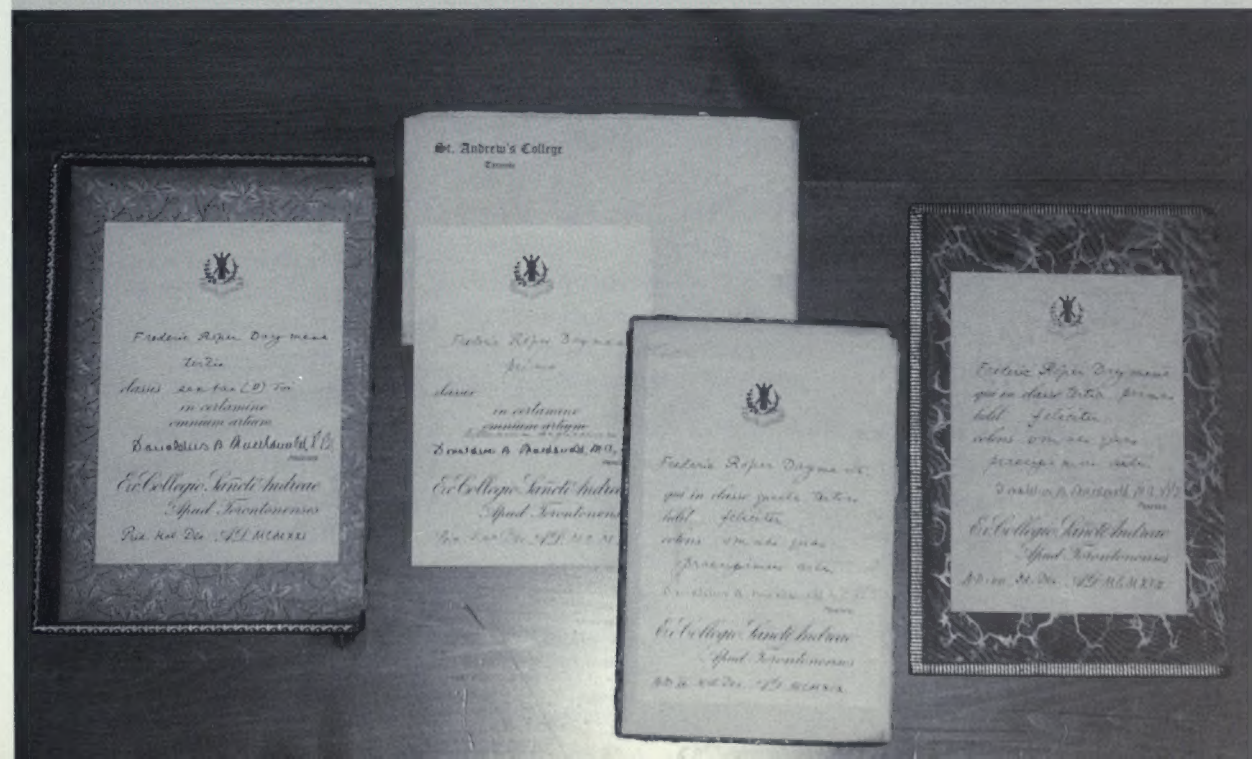 Frederic Roper Daymond
tertio
classis sextae (B) Toi
in certamine
omnium artium
Donaldus B. Macdonald
Ex Collegio Sancti Andreae
Apud Torontonenses
Prid. Kal. Dec. A.D. MCMXXI
St. Andrew's College
Toronto
Frederic Roper Daymond
primo
classis
in certamine
omnium artium
Donaldus B. Macdonald M.A.
Ex Collegio Sancti Andreae
Apud Torontonens
Prid. Kal. Dec. A.D.
Frederic Roper Daymond
qui in classe quarta tertius
tulit feliciter
omne
praecipimus arte
Donaldus B. Macdonald
Ex Collegio Sancti Andreae
Apud Torontonenses
Kal. Dec. A.D. MCMXIX
Frederic Roper Daymond
qui in classe tertia primas
tulit feliciter
omne
praecipimus arte
Donaldus B. Macdonald M.A.
Ex Collegio Sancti Andreae
Apud Torontonenses
Dec. A.D.